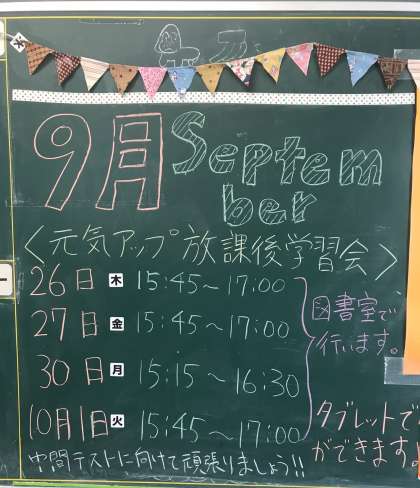 9月 Septem
ber
<元気アップ放課後学習会>
26日 木 15:45~17:00
27日 金 15:45~17:00
30日 月 15:15~16:30
10月1日 火 15:45~17:00
図書室で
行います。
タブレットで
ができます
中間テストに向けて頑張りましょう!!